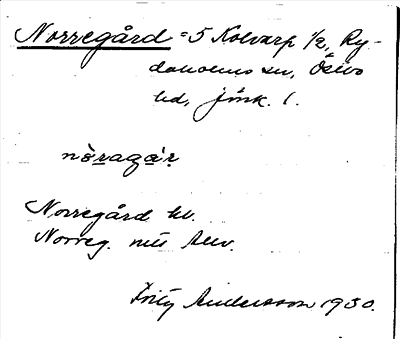 Norregård = 5 Kolvarp 1/2, Ry-
daholms sn, Östbo
hd, Jönk. l.
nòragàr
Norregård hv.
Norreg. nu
Fritz Andersson 1930.